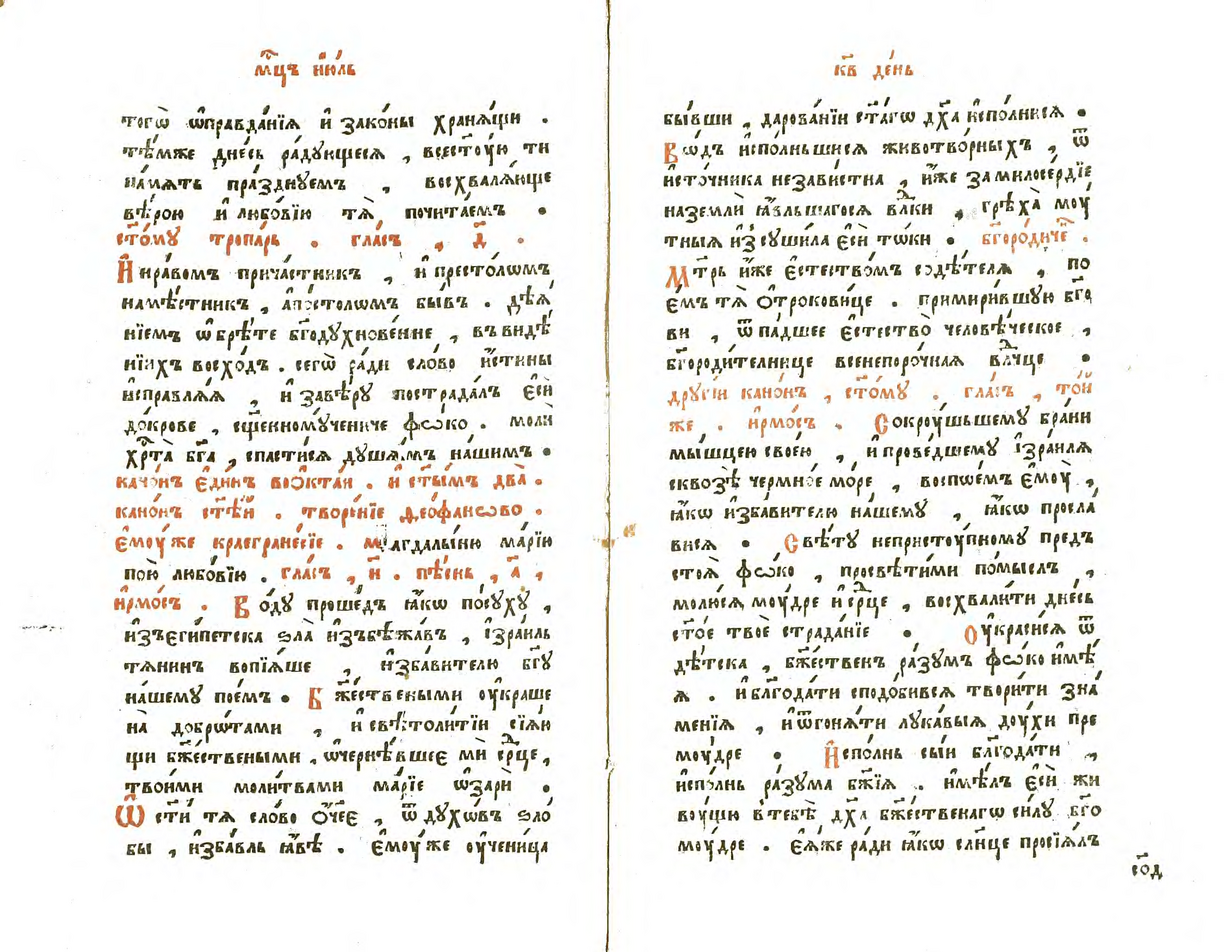 мц҃ъ ию́ль
того̀ ѡ҆правда́нїѧ и҆ зако́ны хранѧ́щи .
тѣ́мже дне́сь ра́дующесѧ , всест҃у́ю ти
па́мѧть пра́зднуемъ , восхвалѧ́юще
вѣ́рою и҆ любо́вїю тѧ̀ почита́емъ .
ст҃о́му тропа́рь . гла́съ , д҃ .
И҆ нра́вомъ прича́стникъ , и҆ престо́лѡмъ
намѣ́стникъ , а҆по́столѡмъ бы́въ . дѣѧ́
нїемъ ѡ҆брѣ́те бг҃одухнове́нне , въ видѣ́
нїихъ восхо́дъ . сегѡ̀ ра́ди сло́во и҆́стины
и҆справлѧ́ѧ , и҆ за вѣ́ру пострада́лъ є҆сѝ
до кро́ве , сщ҃енному́чениче фѡ́ко . молѝ
хрⷭ҇та̀ бг҃а , спасти́сѧ душа́мъ на́шимъ .
кано́нъ є҆ди́нъ во ѻ҆кта́и . и҆ ст҃ы́мъ два̀ .
кано́нъ ст҃ѣ́й . творе́нїе ѳ̾еофа́ново .
є҆му́же краегране́сїе . магдалы́ню марі́ю
пою̀ любо́вїю . гла́съ , и҃ . пѣ́снь , а҃ ,
і҆рмо́съ . В оду проше́дъ ꙗ҆́кѡ по су́ху ,
и҆зъ є҆гі́петска ѕла̀ и҆збѣжа́въ , і҆зра́иль
тѧнинъ вопїѧ́ше , и҆зба́вителю бг҃у
на́шему пое́мъ . Б жⷭ҇твеными ѹ҆кра́ше
на̀ добро́тами , и҆ свѣтоли́тїи сїѧ́ю
щи бжⷭ҇твеными , ѡ҆чернѣ́вшее мѝ срⷣце ,
твои́ми моли́твами марі́е ѡ҆зарѝ .
Ѿ сти́ тѧ сло́во ѻ҆́ч҃ее , ѿ духо́въ ѕло́
бы , и҆зба́вль ꙗ҆́вѣ . є҆му́же ѹ҆чени́ца
кв҃ де́нь
бы́вши , дарова́нїи ст҃а́гѡ дх҃а и҆спо́лнисѧ .
В ѡ́дъ и҆спо́лньшисѧ животво́рныхъ , ѿ
и҆сто́чника незави́стна , и҆́же за милосе́рдїе
на землѝ ꙗ҆́вльшагосѧ влⷣки , грѣха̀ моу́
тныѧ и҆зсуши́ла є҆сѝ то́ки . бг҃оро́диче .
М т҃рь и҆́же є҆стество́мъ содѣ́телѧ , по
е́мъ тѧ̀ ѻ҆трокови́це . примири́вшую бг҃о
ви , ѿпа́дшее є҆стество̀ человѣ́ческое ,
бг҃ороди́телнице всенепоро́чнаѧ влⷣчце .
другі́и кано́нъ , ст҃о́му . гла́съ , то́й
же . і҆рмо́съ . С окруши́вшему бра́ни
мы́шцею свое́ю , и҆ прове́дшему і҆зра́илѧ
сквозѣ̀ чермно́е мо́ре , воспои́мъ є҆моу̀ ,
ꙗ҆́кѡ и҆зба́вителю на́шему , ꙗ҆́кѡ просла́
висѧ . С вѣ́ту непристу́пному предъ
стоѧ̀ фѡ́ко , просвѣти́ми по́мыслъ ,
молю́сѧ му́дре и҆ срⷣце , восхвали́ти дне́сь
ст҃о́е твоѐ страда́нїе . Ѹ҆ кра́сисѧ ѿ
дѣ́тска , бжⷭ҇твенъ ра́зумъ фѡ́ко и҆мѣ́
ѧ . и҆ благода́ти сподо́бивсѧ твори́ти зна́
менїѧ , и҆ ѿгонѧ́ти лука́выѧ ду́хи пре
му́дре . И҆ спо́лнь сы́и благода́ти ,
и҆спо́лнь ра́зума бж҃їѧ . и҆мѣ́лъ є҆сѝ жи
ву́щю в тебѣ̀ дх҃а бжⷭ҇твенагѡ си́лу бг҃о
му́дре . є҆ѧ́же ра́ди ꙗ҆́кѡ сл҃нце просїѧ́лъ
со́д